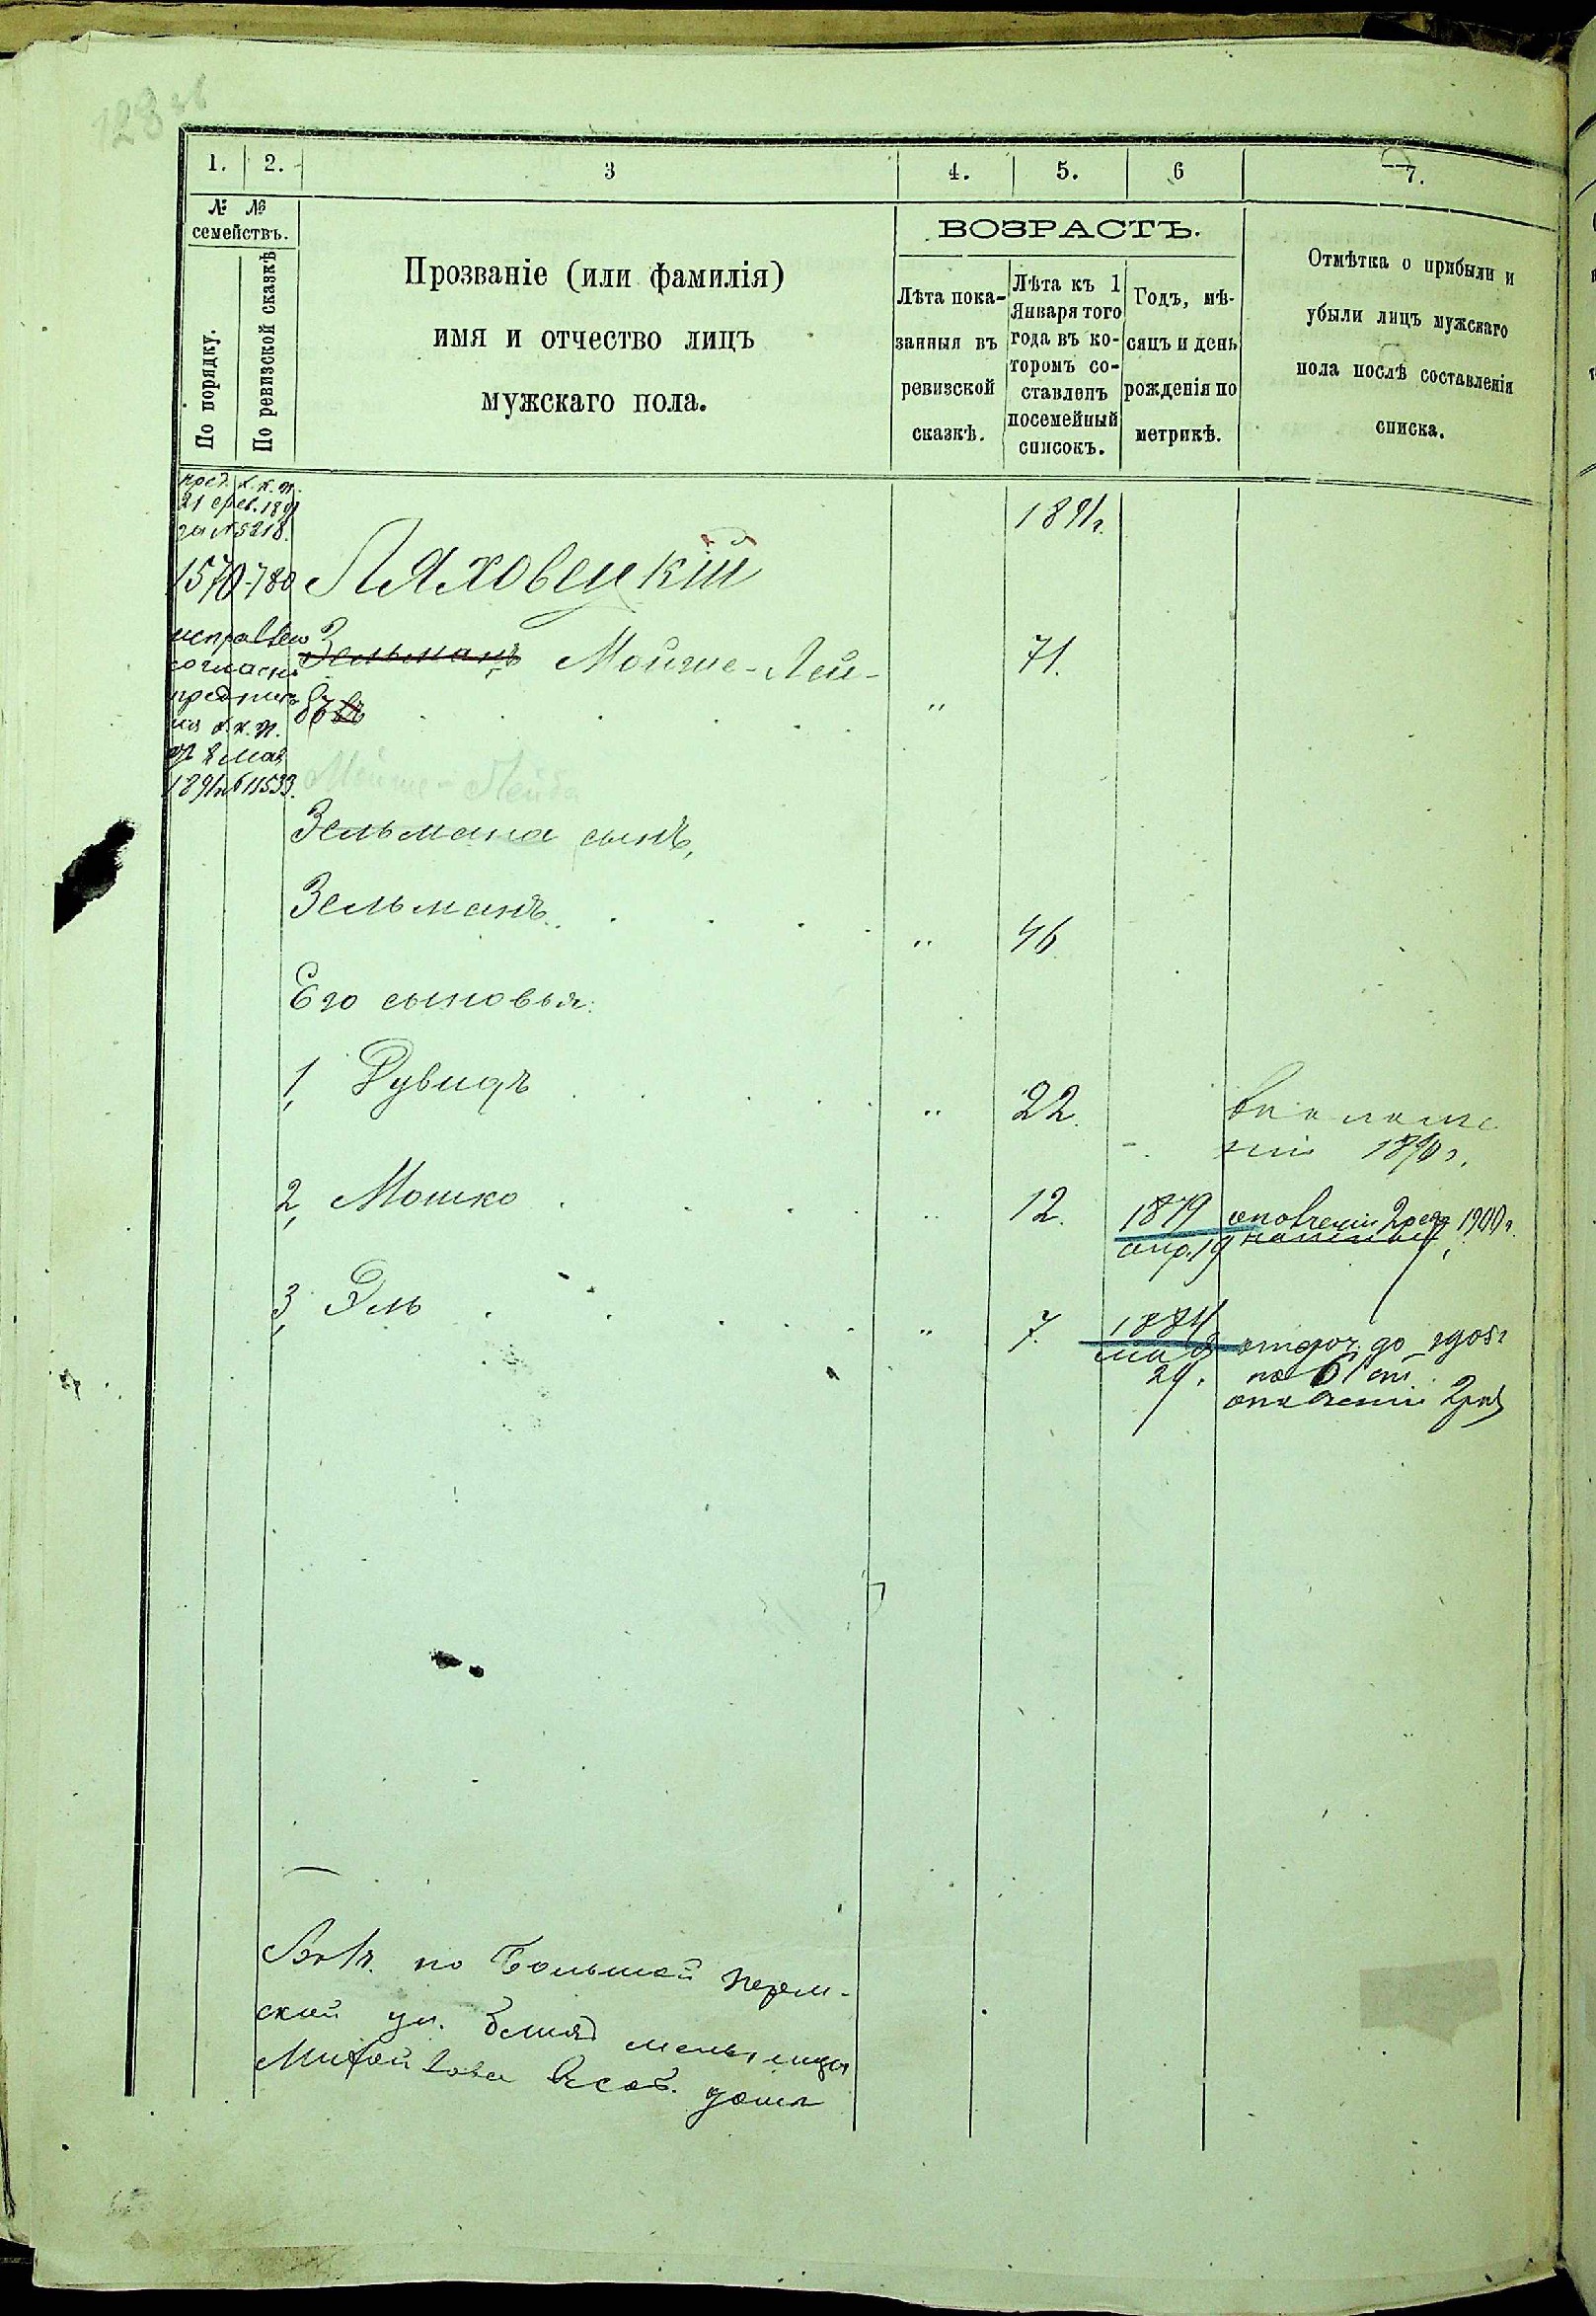 1. 2. 3 4. 5. 6 7.
№ №
семействъ.
По порядку.
По ревизской сказкѣ
Прозваніе (или фамилія)
имя и отчество лицъ
мужскаго пола.
ВОЗРАСТЪ.
Лѣта пока-
занныя въ
ревизской
сказкѣ.
Лѣта къ 1
Января того
года въ ко-
торомъ со-
ставленъ
посемейный
списокъ.
Годъ, мѣ-
сяцъ и день
рожденія по
метрикѣ.
Отмѣтка о прибыли и
убыли лицъ мужскаго
пола послѣ составленія
списка.
пред. К. К. П.
21 фев. 1891
за № 5218.
1891 г.
1570 780 Ляховецкій
исправлено
согласно
предпис
К. К. П.
8 мая
1891 № 11533.
Зельманъ Мойше-Лей- 71.
бъ "
Мойше-Лейба
Зельмана сынъ,
Зельманъ " 46
Его сыновья:
1, Рувинъ " 22.
1890 г.
2, Мошко " 12. 1879 ополченія 2 разр 1900 г.
апр. 19
3, Эль " 7. 1884 отсроч. до 1905 г
мая
29. по 61 ст.
ополченія 2 раз
по Большой
ской ул.
дома